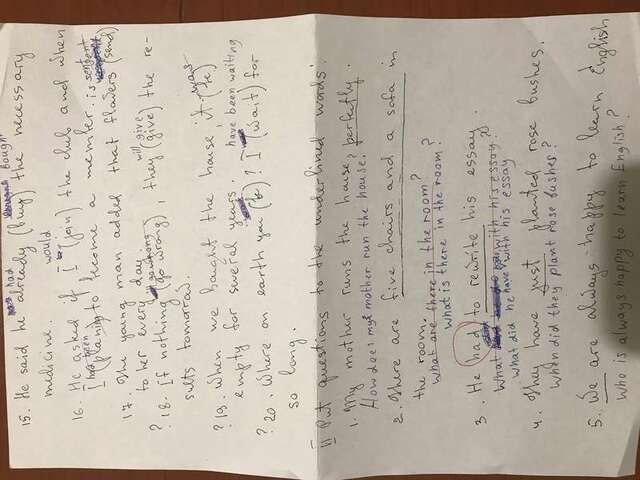 had bough
15. He said he already (buy) the necessary
medicine.
would
16. He asked if I (join) the club and when
had been
I (planing to become a member.
is sent
17. The young man added that flowers (send)
to her every day.
go wrong
will give
? 18. If nothing (go wrong), they (give) the re-
sults tomorrow.
was
? 19. When we bought the house, it (be)
empty for several years.
have been waiting
? 20. Where on earth you (be)? I (wait) for
so long.
II Put questions to the underlined words:
1. My mother runs the house perfectly.
How does my mother run the house.
2. There are five chairs and a sofa in
the room.
what are there in the room?
what is there in the room?
3. He had to rewrite his essay.
what with his essay?
what did he have with his essay
4. They have just planted rose bushes.
when did they plant rose bushes?
5. We are always happy to learn English
Who is always happy to learn English?